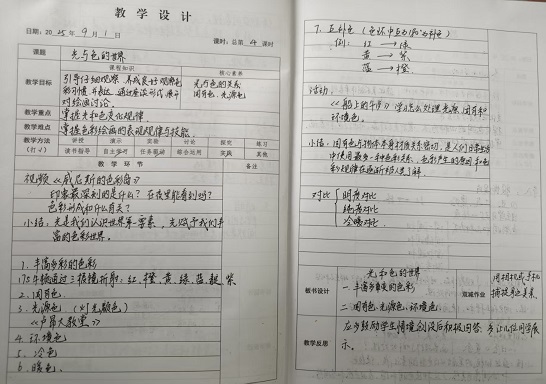 教学设计
日期：2025年9月1日
课时：总第4课时
课题 光与色的世界
课程知识 核心素养
教学目标
引导仔细观察，养成良好观察色
彩习惯，并表达，通过座谈形式展示
对绘画讨论。
光与色的关系
固有色、光源色
教学重点 掌握光和色变化规律。
教学难点 掌握色彩绘画的表现规律与技能。
教学方法 讲授 演示 实验 讨论 探究 练习
(打√) 读书指导 自主学习 任务驱动 综合运用 实践 其他
教学环节 备注
视频《威尼斯的色彩岛》
印象最深刻的是什么？在夜里能看到吗？
色彩形成和什么有关？
小结：光是我们认识世界第一要素，光赋予我们丰
富的色彩世界。
1. 丰富多彩的色彩
牛顿通过三棱镜折射：红、橙、黄、绿、蓝、靛、紫
2. 固有色
3. 光源色（灯光颜色）
《卢昂大教堂》
4. 环境色
5. 冷色
6. 暖色。
7. 互补色（色环中互为180°为补色）
例：红→绿
黄→紫
蓝→橙
活动：
《船上的午餐》学习怎么处理光源、固有和
环境色。
小结：固有色与物体本身材质关系密切，是人们日常生活
中使用最多一种色彩关系，
对比 明度对比
纯度对比
冷暖对比
板书设计
光和色的世界
一、丰富多彩的色彩
二、固有色、光源色、环境色
双减作业
用相机或手机
捕捉身边美景。
教学反思
应多鼓励学生情境创设后积极回答，多让几位同学展
示。